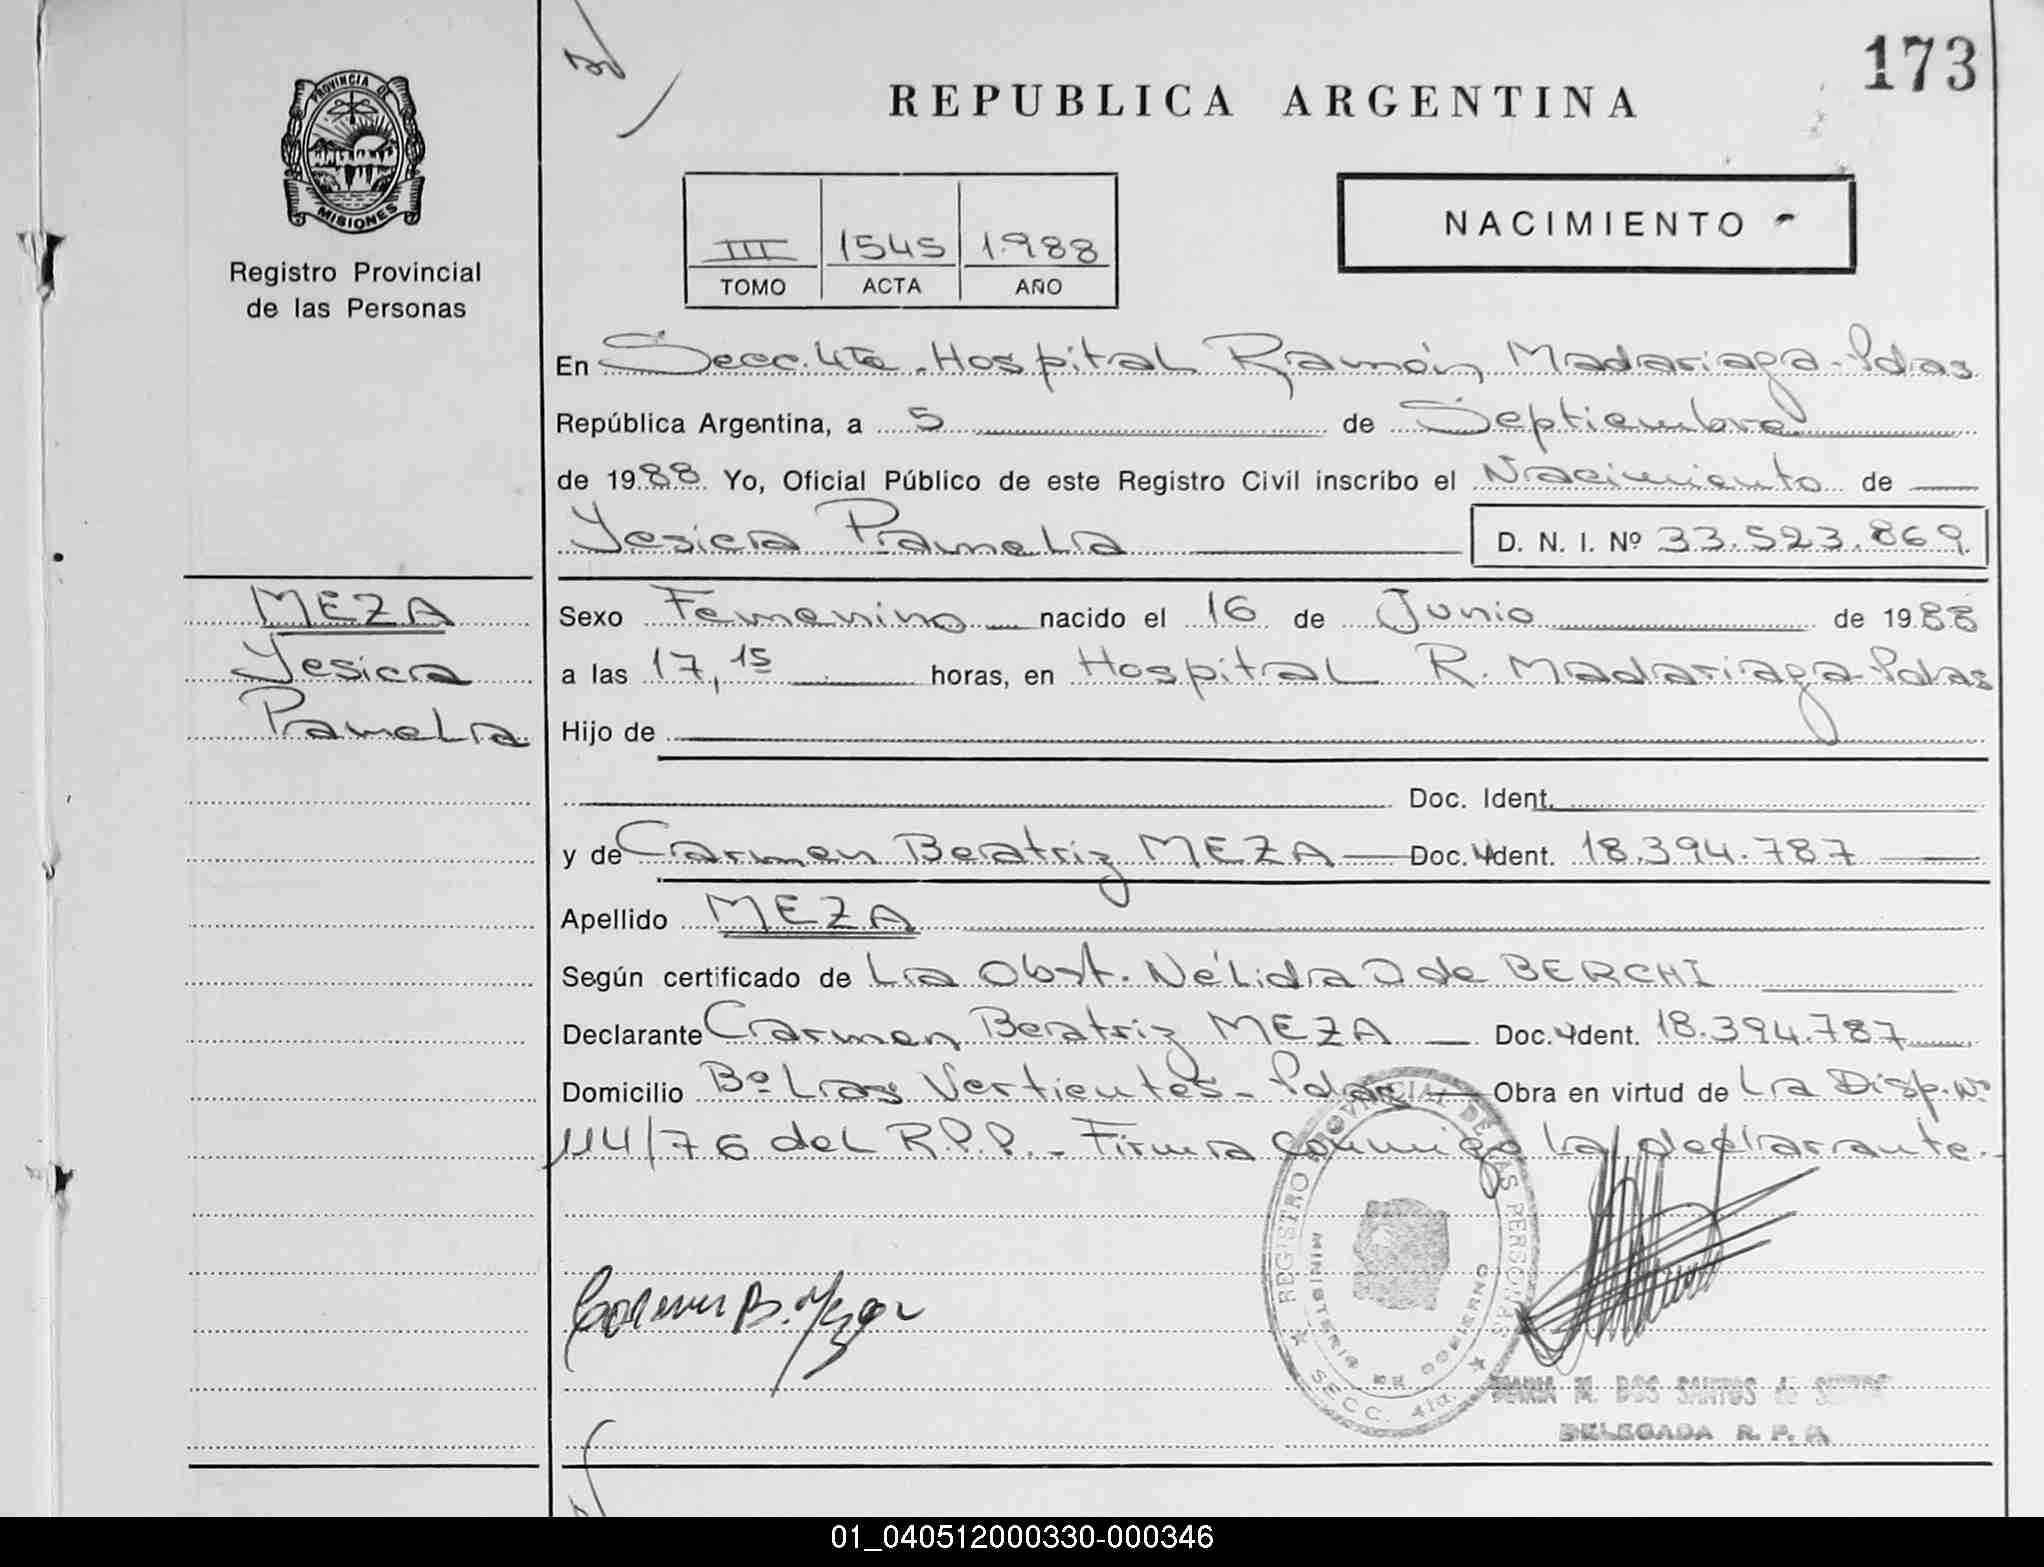 173
PROVINCIA DE
MISIONES
Registro Provincial
de las Personas
REPUBLICA ARGENTINA
NACIMIENTO
III 1545 1988
TOMO ACTA AÑO
En Secc. 4ta. Hospital Ramón Madariaga - Pdas
República Argentina, a 5 de Septiembre
de 1988 Yo, Oficial Público de este Registro Civil inscribo el Nacimiento de
Yesica Pamela D. N. I. Nº 33.523.869
MEZA
Yesica
Pamela
Sexo Femenino nacido el 16 de Junio de 1988
a las 17,15 horas, en Hospital R. Madariaga - Pdas
Hijo de
Doc. Ident.
y de Carmen Beatriz MEZA Doc. Ident. 18.394.787
Apellido MEZA
Según certificado de La Obst. Nélida O de BERCHI
Declarante Carmen Beatriz MEZA Doc. Ident. 18.394.787
Domicilio Bº Las Vertientes - Pdas Obra en virtud de La Disp. Nº
114/76 del R.P.P. - Firma conmigo la declarante.
REGISTRO PROVINCIAL DE LAS PERSONAS
MINISTERIO DE GOBIERNO
SECC. 4ta.
Carmen B. Meza
M. DOS SANTOS de
DELEGADA R. P. P.
01_040512000330-000346